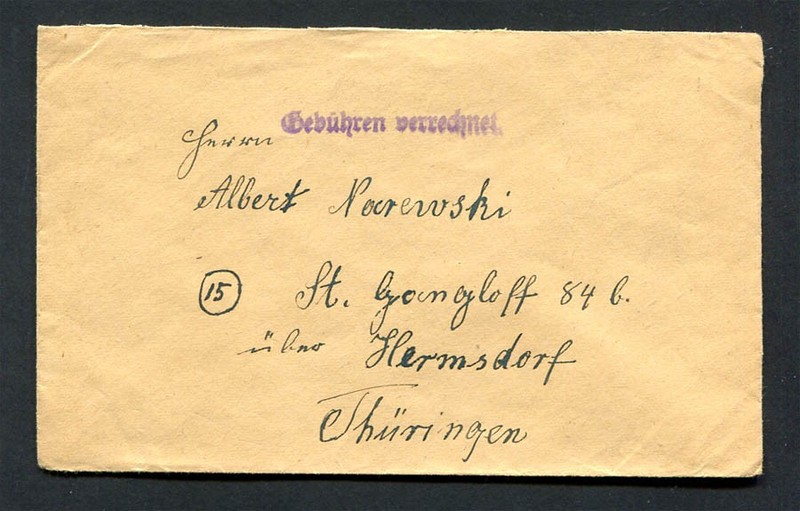 Gebühren verrechnet.
Herrn
Albert Narewski
15 St. Gangloff 84 b.
über Hermsdorf
Thüringen